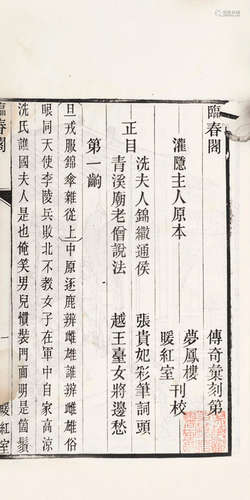 臨春閣 傳奇彙刻第
灌隱主人原本
夢鳳樓
暖紅室
刊校
正目
洗夫人錦繖通侯 張貴妃彩筆詞頭
青溪廟老僧說法 越王臺女將邊愁
第一齣
旦戎服錦傘雜從上中原逐鹿辨雌雄誰辨雌雄俗
眼同天使李陵兵敗北不教女子在軍中自家高涼
洗氏譙國夫人是也俺笑男兒慣裝門面明是箇鬚
臨春閣 一 暖紅室